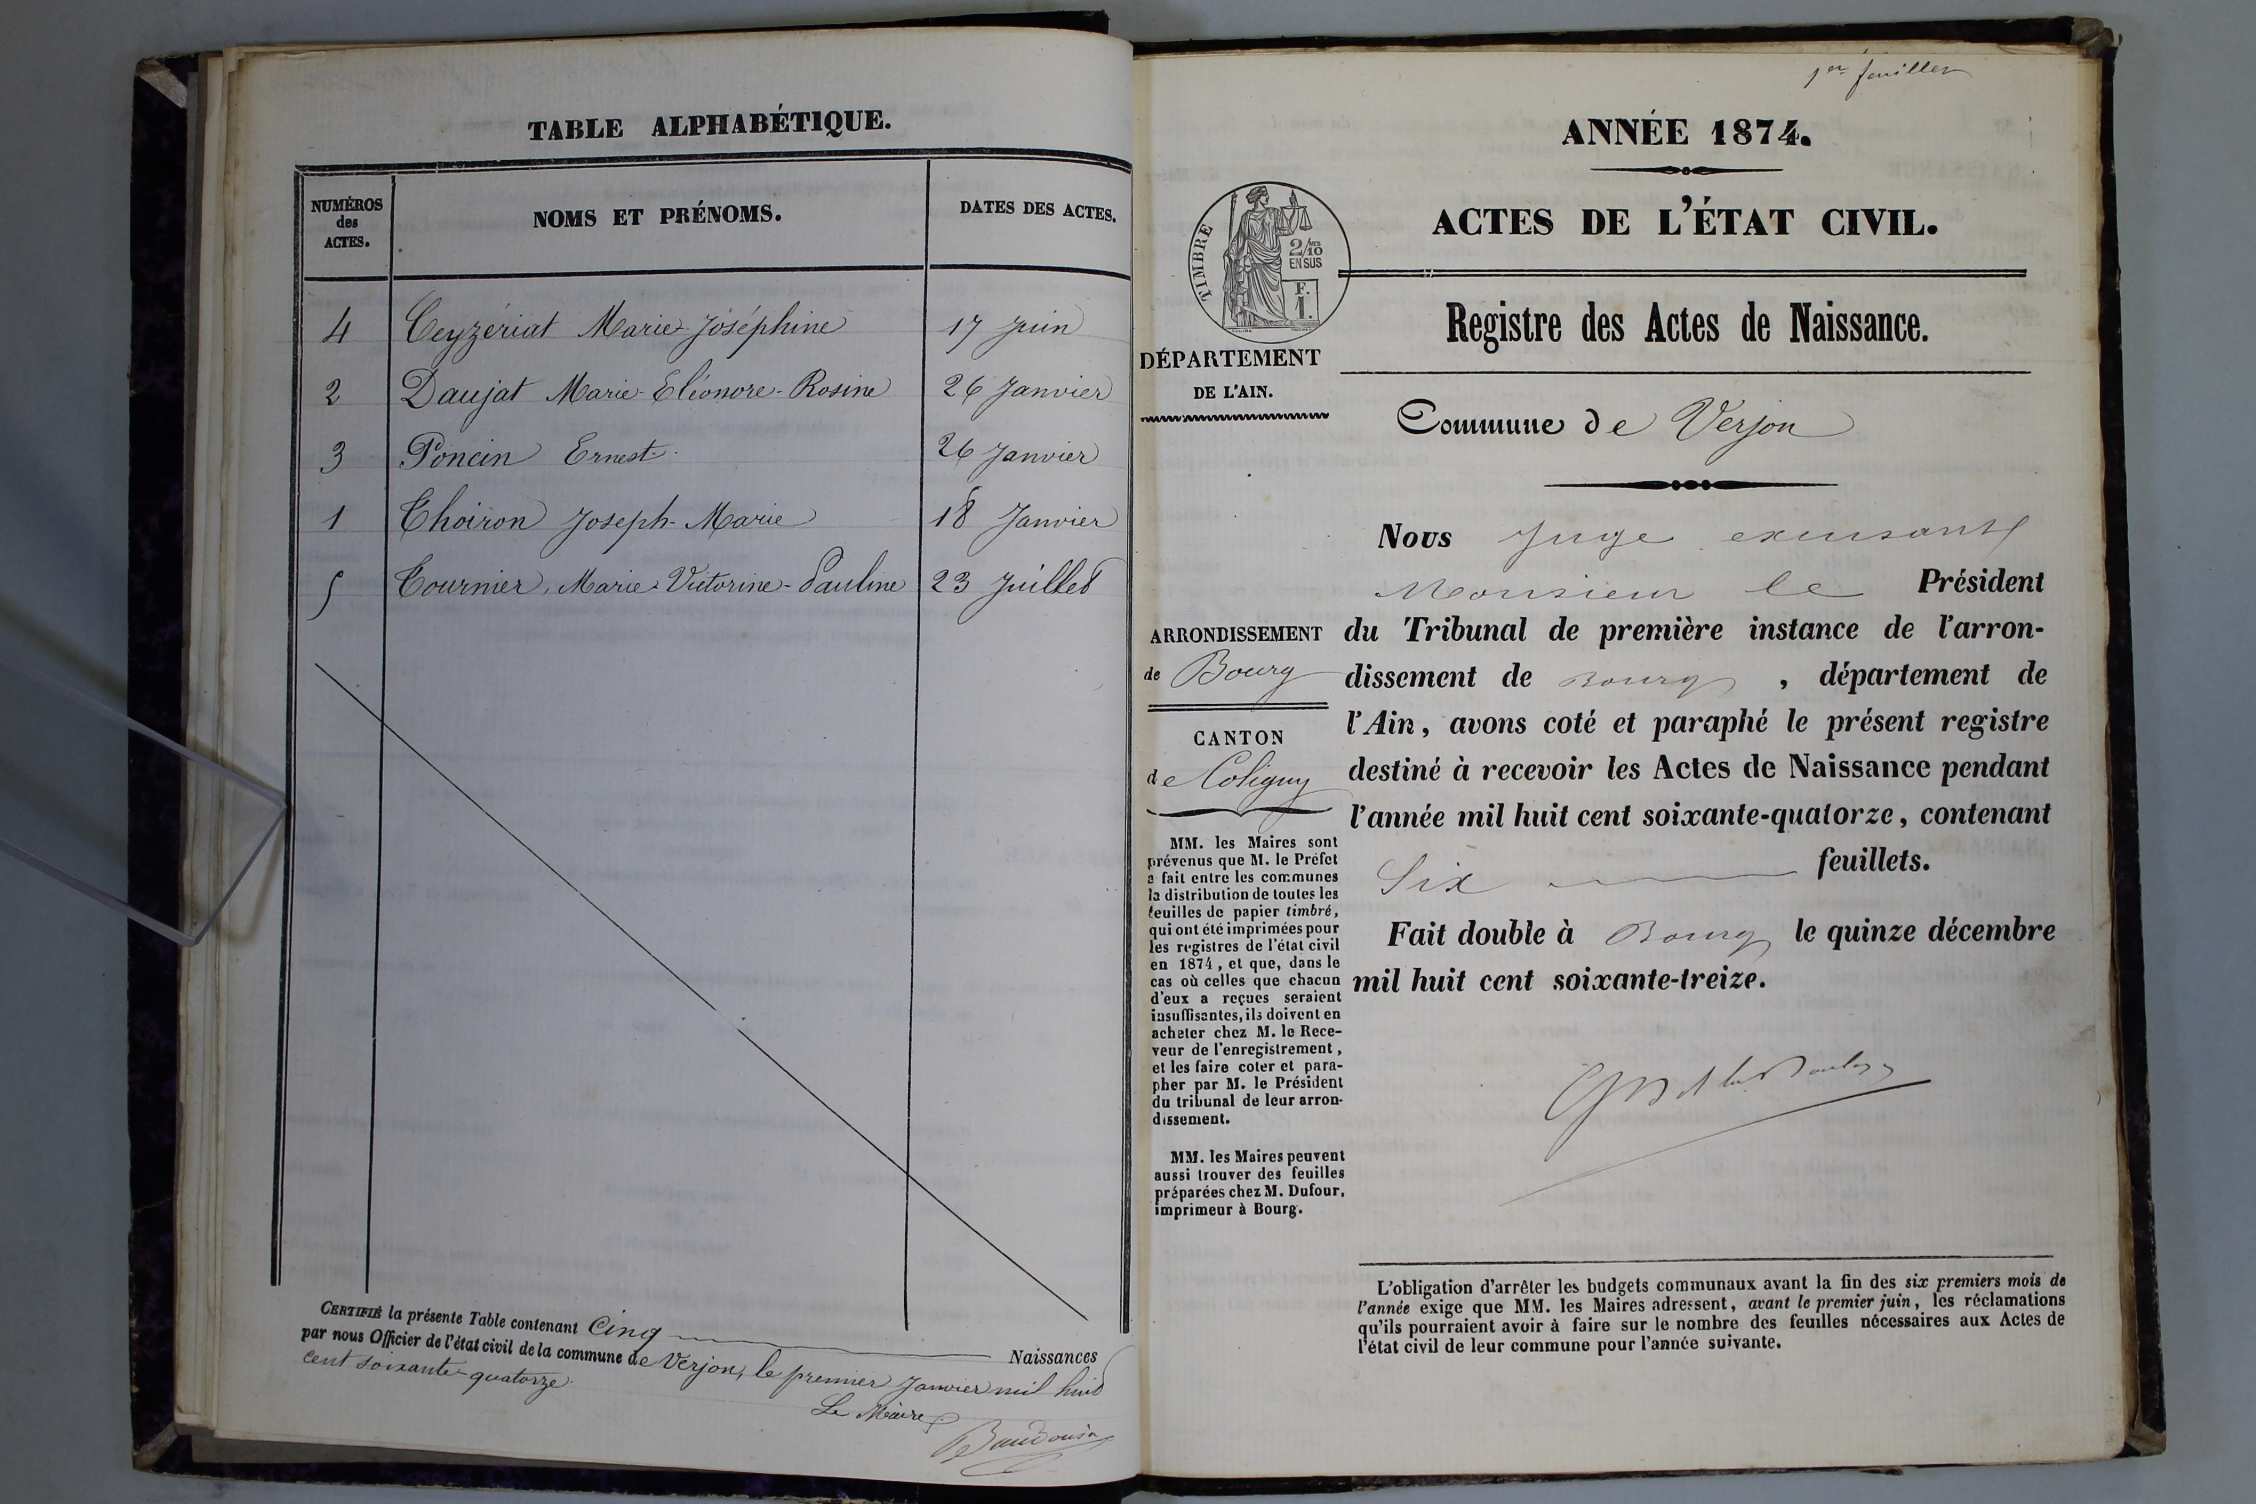 TABLE ALPHABÉTIQUE.
NUMÉROS
des
ACTES.
NOMS ET PRÉNOMS.
DATES DES ACTES.
4 Ceyzériat Marie-Joséphine 17 Juin
2 Daujat Marie-Eléonore-Rosine 26 Janvier
3 Poncin Ernest 26 Janvier
1 Thoiron Joseph-Marie 18 Janvier
5 Tournier, Marie-Victorine-Pauline 23 Juillet
CERTIFIÉ la présente Table contenant Cinq Naissances
par nous Officier de l'état civil de la commune de Verjon, le premier Janvier mil huit
cent soixante-quatorze.
Le Maire,
Baudouin
1er feuillet
ANNÉE 1874.
ACTES DE L'ÉTAT CIVIL.
TIMBRE
2/10
EN SUS
F.
1.
Registre des Actes de Naissance.
DÉPARTEMENT
DE L'AIN.
Commune de Verjon
ARRONDISSEMENT
de Bourg
CANTON
de Coligny
MM. les Maires sont
prévenus que M. le Préfet
a fait entre les communes
la distribution de toutes les
feuilles de papier timbré,
qui ont été imprimées pour
les registres de l'état civil
en 1874, et que, dans le
cas où celles que chacun
d'eux a reçues seraient
insuffisantes, ils doivent en
acheter chez M. le Rece-
veur de l'enregistrement,
et les faire coter et para-
pher par M. le Président
du tribunal de leur arron-
dissement.
MM. les Maires peuvent
aussi trouver des feuilles
préparées chez M. Dufour,
imprimeur à Bourg.
Nous Juge excusant
Monsieur le Président
du Tribunal de première instance de l'arron-
dissement de Bourg, département de
l'Ain, avons coté et paraphé le présent registre
destiné à recevoir les Actes de Naissance pendant
l'année mil huit cent soixante-quatorze, contenant
Six feuillets.
Fait double à Bourg le quinze décembre
mil huit cent soixante-treize.
L'obligation d'arrêter les budgets communaux avant la fin des six premiers mois de
l'année exige que MM. les Maires adressent, avant le premier juin, les réclamations
qu'ils pourraient avoir à faire sur le nombre des feuilles nécessaires aux Actes de
l'état civil de leur commune pour l'année suivante.